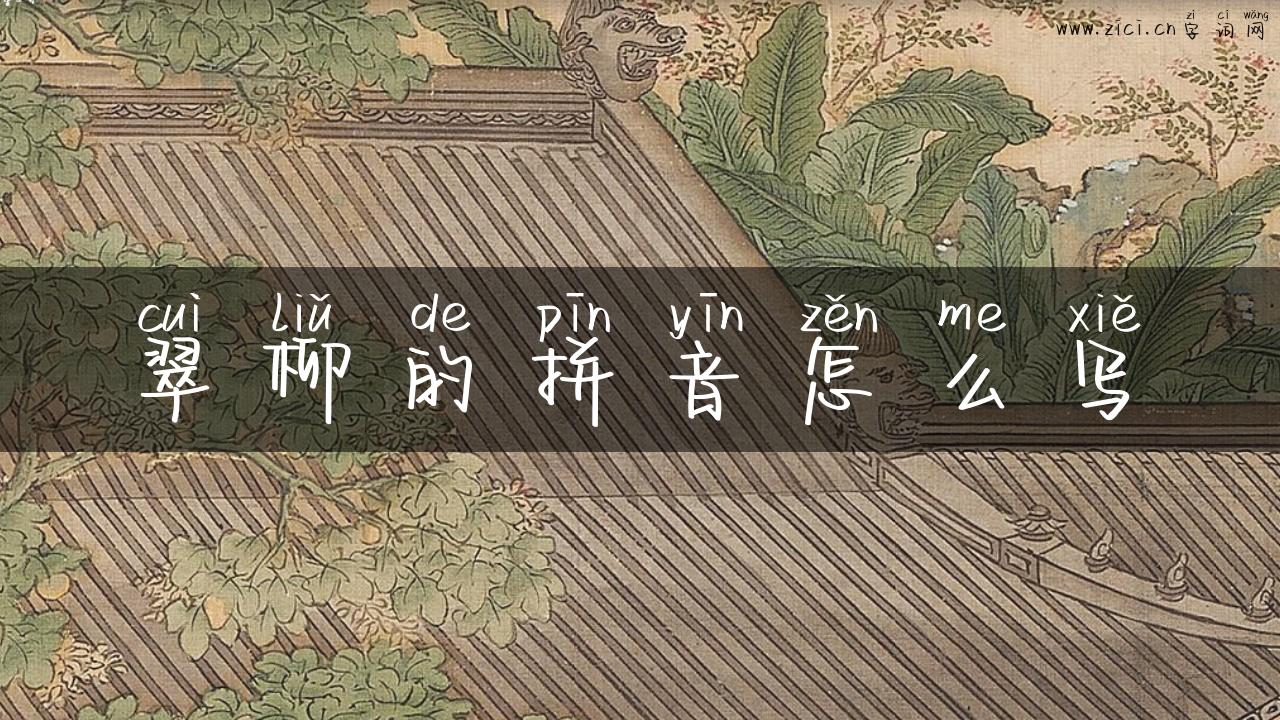 zì cí wǎng
www.zici.cn 字词网
cuì liǔ de pīn yīn zěn me xiě
翠柳的拼音怎么写